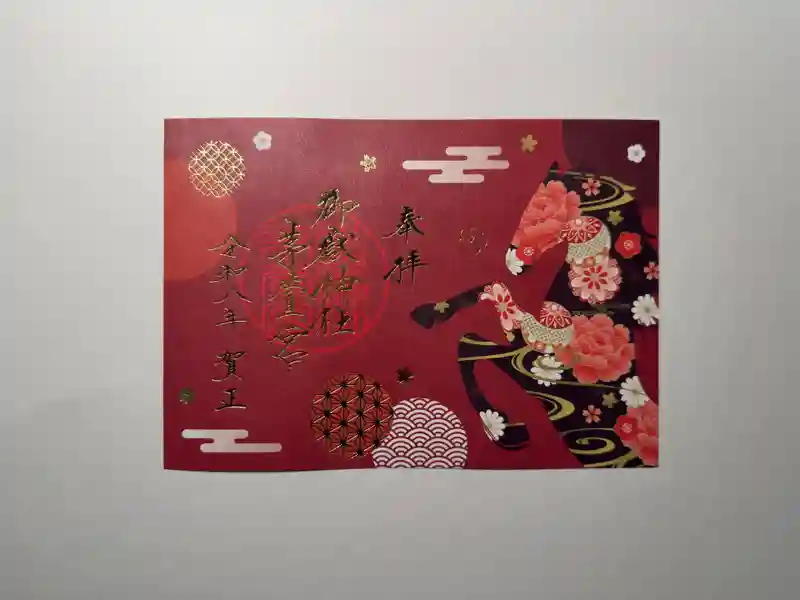 奉拝
御嶽神社
茅萱宮
令和八年 賀正